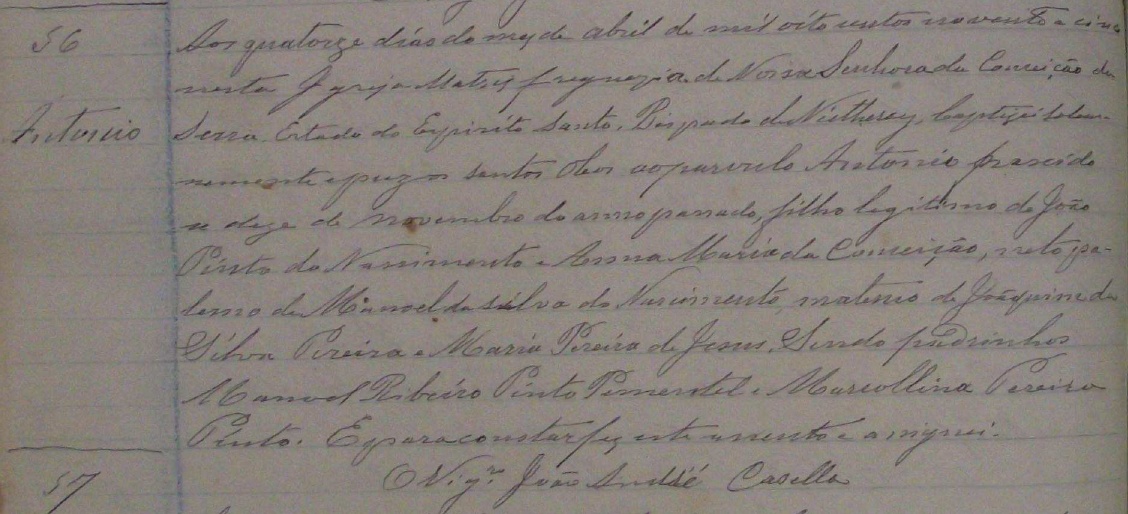 56
Aos quatorze dias do mez de abril de mil oito centos noventa e cinco
nesta Igreja Matriz, freguezia de Nossa Senhora da Conceição da
Antonio
Serra Estado do Espirito Santo, Bispado de Nictheroy, baptizei solem-
nemente e puz os santos oleos ao parvulo Antonio nascido
a doze de novembro do anno passado, filho legitimo de João
Pinto do Nascimento e Anna Maria da Conceição, neto pa-
terno de Manoel da Silva do Nascimento, materno de Joaquim da
Silva Pereira e Maria Pereira de Jesus. Sendo padrinhos
Manoel Ribeiro Pinto Pimentel e Marcollina Pereira
Pinto. E para constar fiz este assento e assignei.
O Vigr.º João André Casella
57